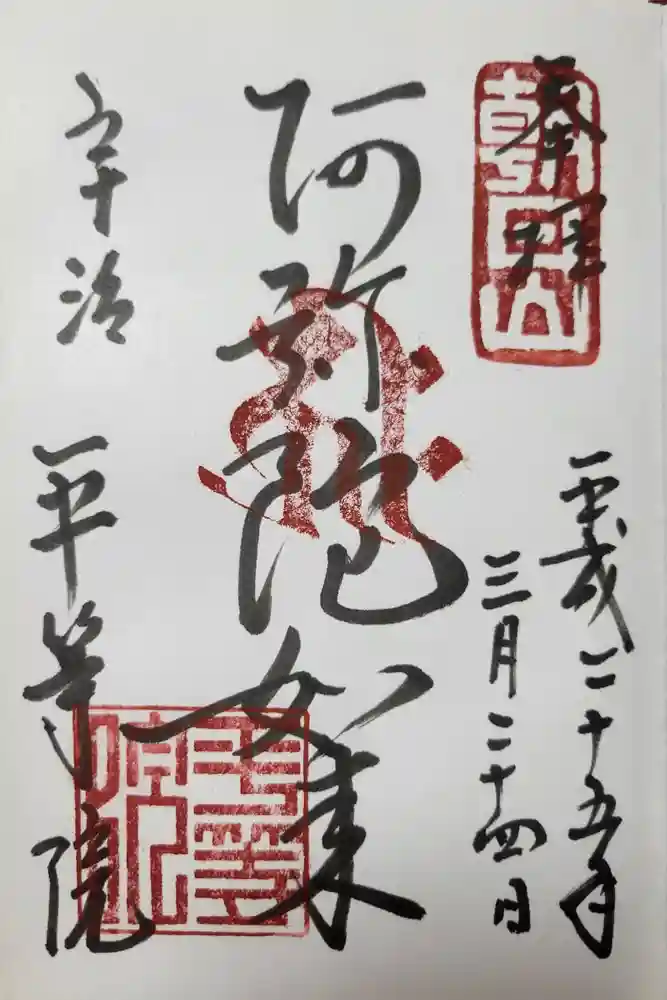 奉拝
朝日山
平成二十五年
三月二十四日
阿弥陀如来
宇治
平等院